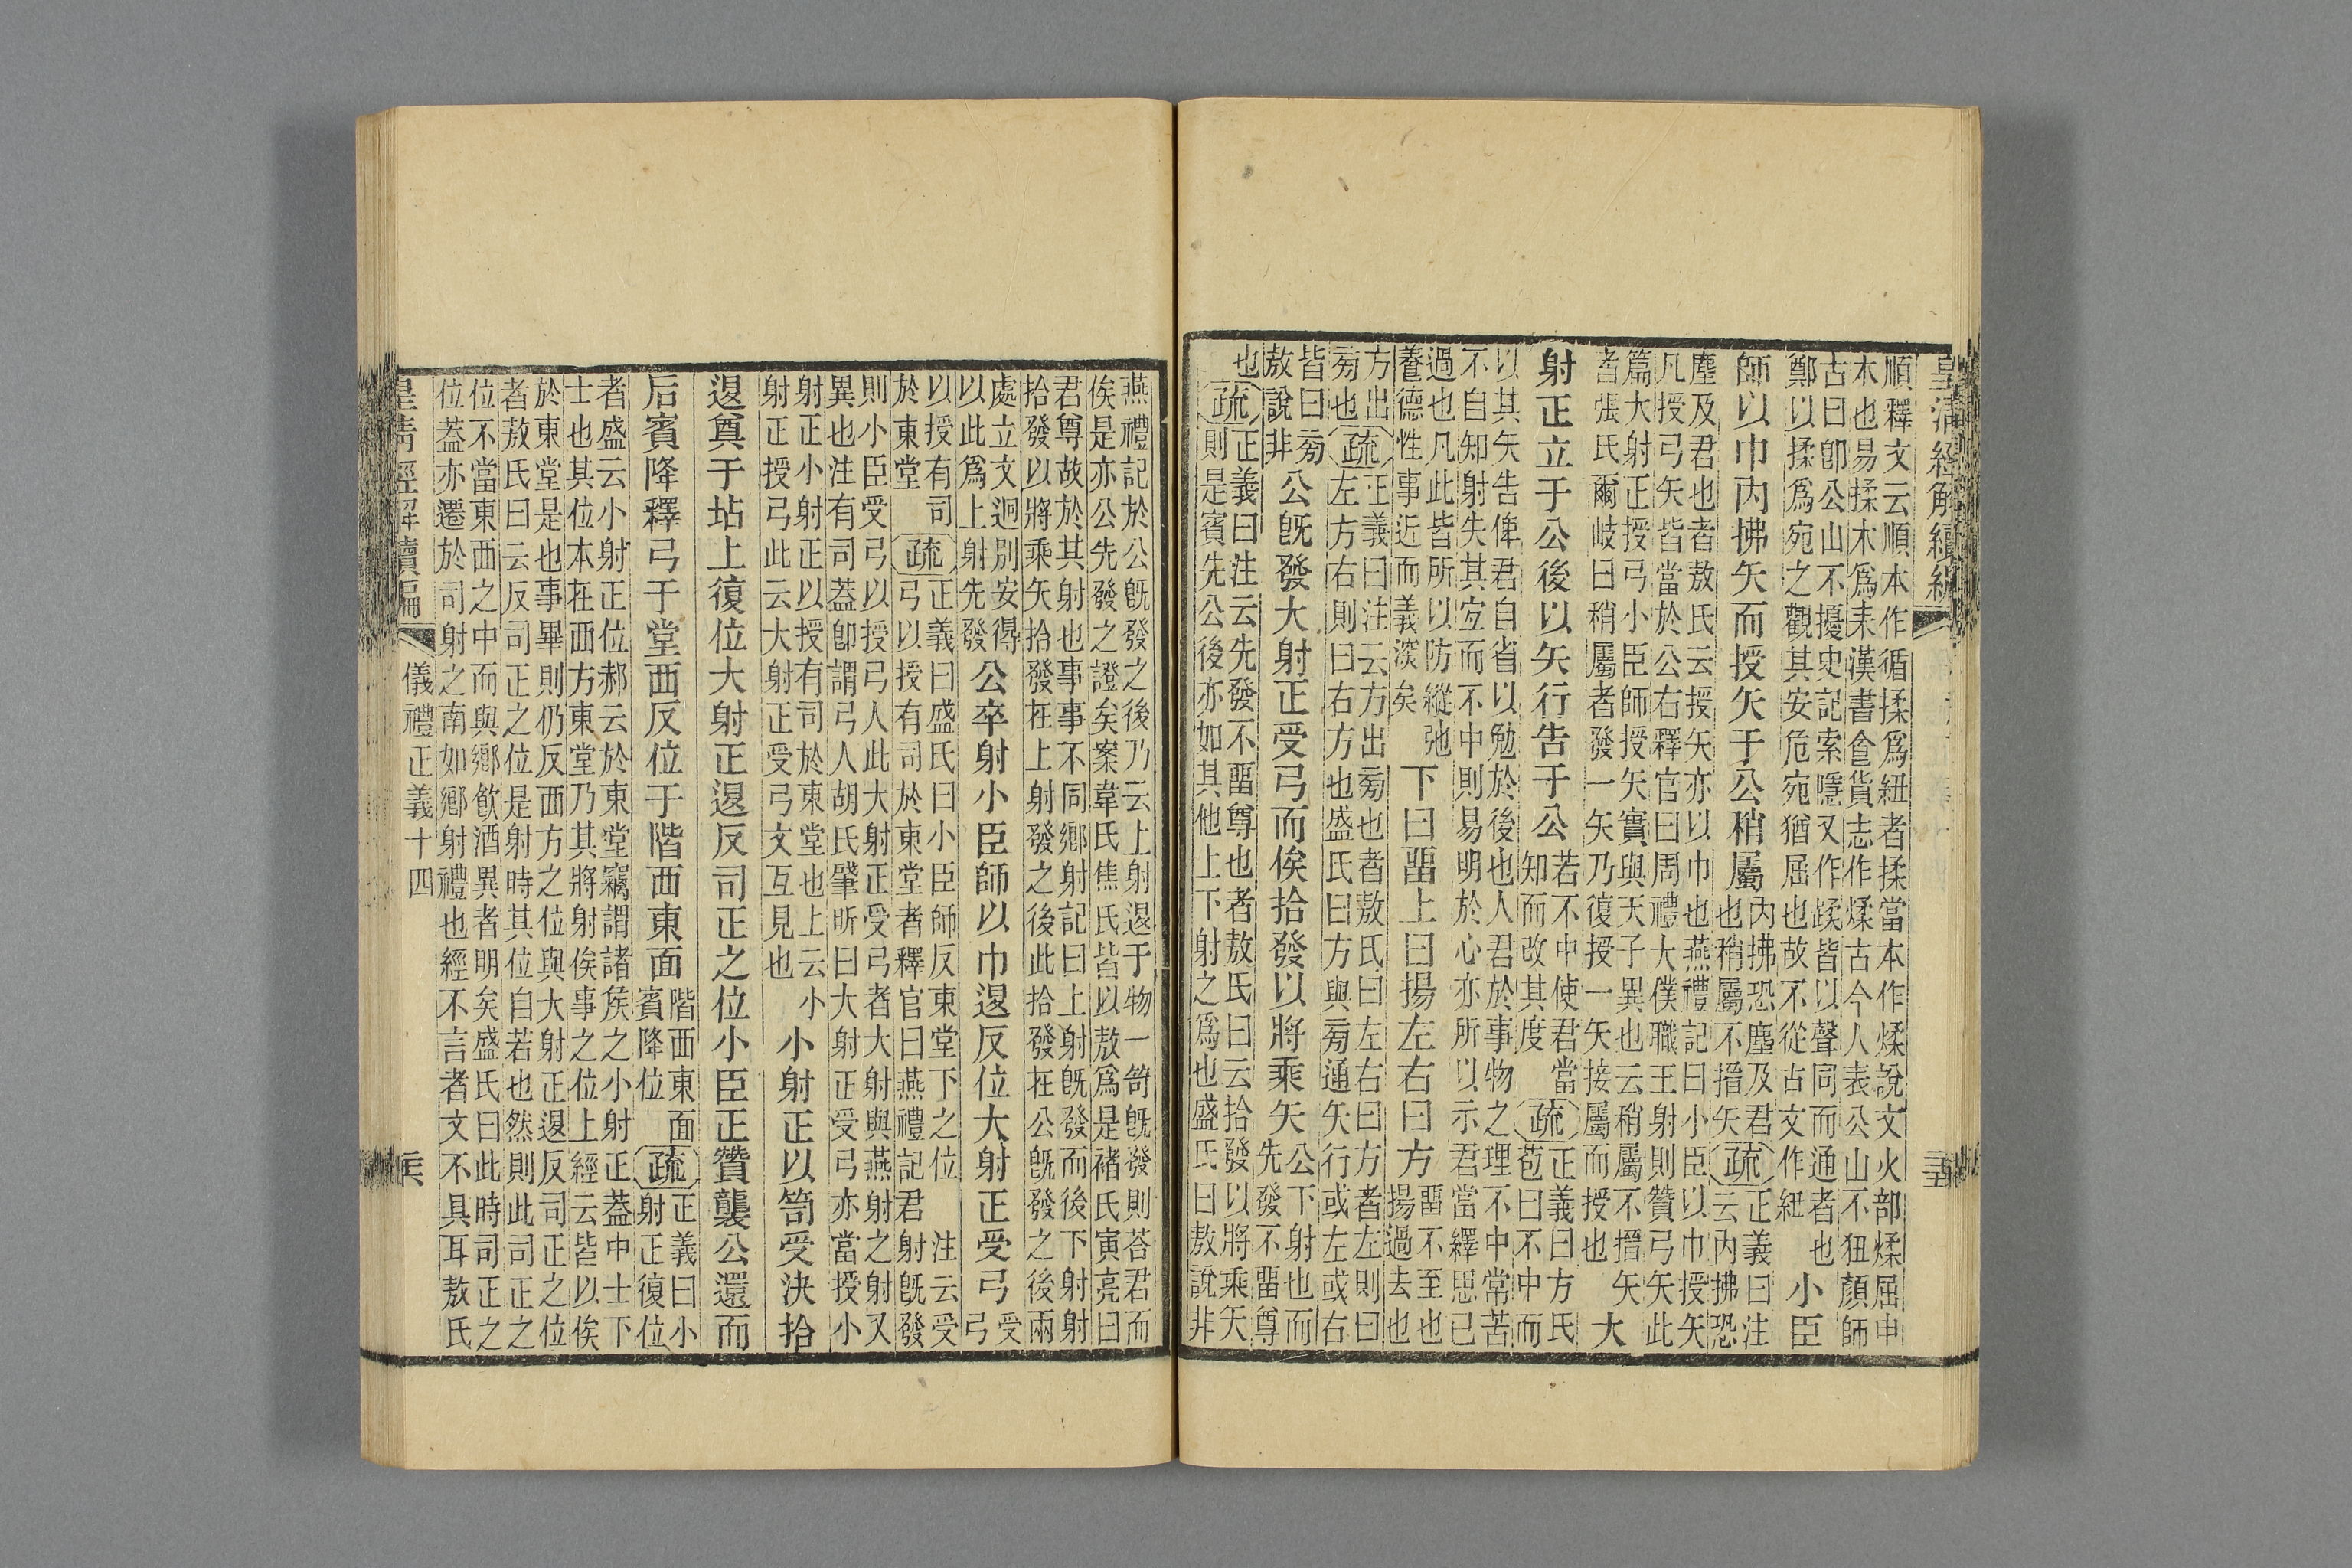 皇清經解續編
順釋文云順本作循揉爲紐者揉當本作煣說文火部煣屈申
木也易揉木爲耒漢書食貨志作煣古今人表公山不狃顏師
古曰卽公山不擾史記索隱又作蹂皆以聲同而通者也
鄭以揉爲宛之觀其安危宛猶屈也故不從古文作紐
小臣
師以巾內拂矢而授矢于公稍屬
內拂恐塵及君
也稍屬不搢矢
疏
正義曰注
云內拂恐
塵及君也者敖氏云授矢亦以巾也燕禮記曰小臣以巾授矢
凡授弓矢皆當於公右釋官曰周禮大僕職王射則贊弓矢此
篇大射正授弓小臣師授矢實與天子異也云稍屬不搢矢
者張氏爾岐曰稍屬者發一矢乃復授一矢接屬而授也
大
射正立于公後以矢行告于公
若不中使君當
知而改其度
疏
正義曰方氏
苞曰不中而
以其矢告俾君自省以勉於後也人君於事物之理不中常苦
不自知射失其宜而不中則易明於心亦所以示君當繹思已
過也凡此皆所以防縱弛
養德性事近而義深矣
下曰畱上曰揚左右曰方
畱不至也
揚過去也
方出
旁也
疏
正義曰注云方出旁也者敖氏曰左右曰方者左則曰
左方右則曰右方也盛氏曰方與旁通矢行或左或右
皆曰旁
敖說非
公旣發大射正受弓而俟拾發以將乘矢
公下射也而
先發不畱尊
也
疏
正義曰注云先發不畱尊也者敖氏曰云拾發以將乘矢
則是賓先公後亦如其他上下射之爲也盛氏曰敖說非
燕禮記於公旣發之後乃云上射退于物一笴旣發則荅君而
俟是亦公先發之證矣案韋氏焦氏皆以敖爲是褚氏寅亮曰
君尊故於其射也事事不同鄉射記曰上射旣發而後下射射
拾發以將乘矢拾發在上射發之後此拾發在公旣發之後兩
處立文迥別安得
以此爲上射先發
公卒射小臣師以巾退反位大射正受弓
受
弓
以授有司
於東堂
疏
正義曰盛氏曰小臣師反東堂下之位 注云受
弓以授有司於東堂者釋官曰燕禮記君射旣發
則小臣受弓以授弓人此大射正受弓者大射與燕射之射又
異也注有司蓋卽謂弓人胡氏肇昕曰大射正受弓亦當授小
射正小射正以授有司於東堂也上云小
射正授弓此云大射正受弓文互見也
小射正以笴受決拾
退奠于坫上復位大射正退反司正之位小臣正贊襲公還而
后賓降釋弓于堂西反位于階西東面
階西東面
賓降位
疏
正義曰小
射正復位
者盛云小射正位郝云於東堂竊謂諸侯之小射正蓋中士下
士也其位本在西方東堂乃其將射俟事之位上經云皆以俟
於東堂是也事畢則仍反西方之位與大射正退反司正之位
者敖氏曰云反司正之位是射時其位自若也然則此司正之
位不當東西之中而與鄉飮酒異者明矣盛氏曰此時司正之
位蓋亦遷於司射之南如鄉射禮也經不言者文不具耳敖氏
皇清經解續編
儀禮正義十四